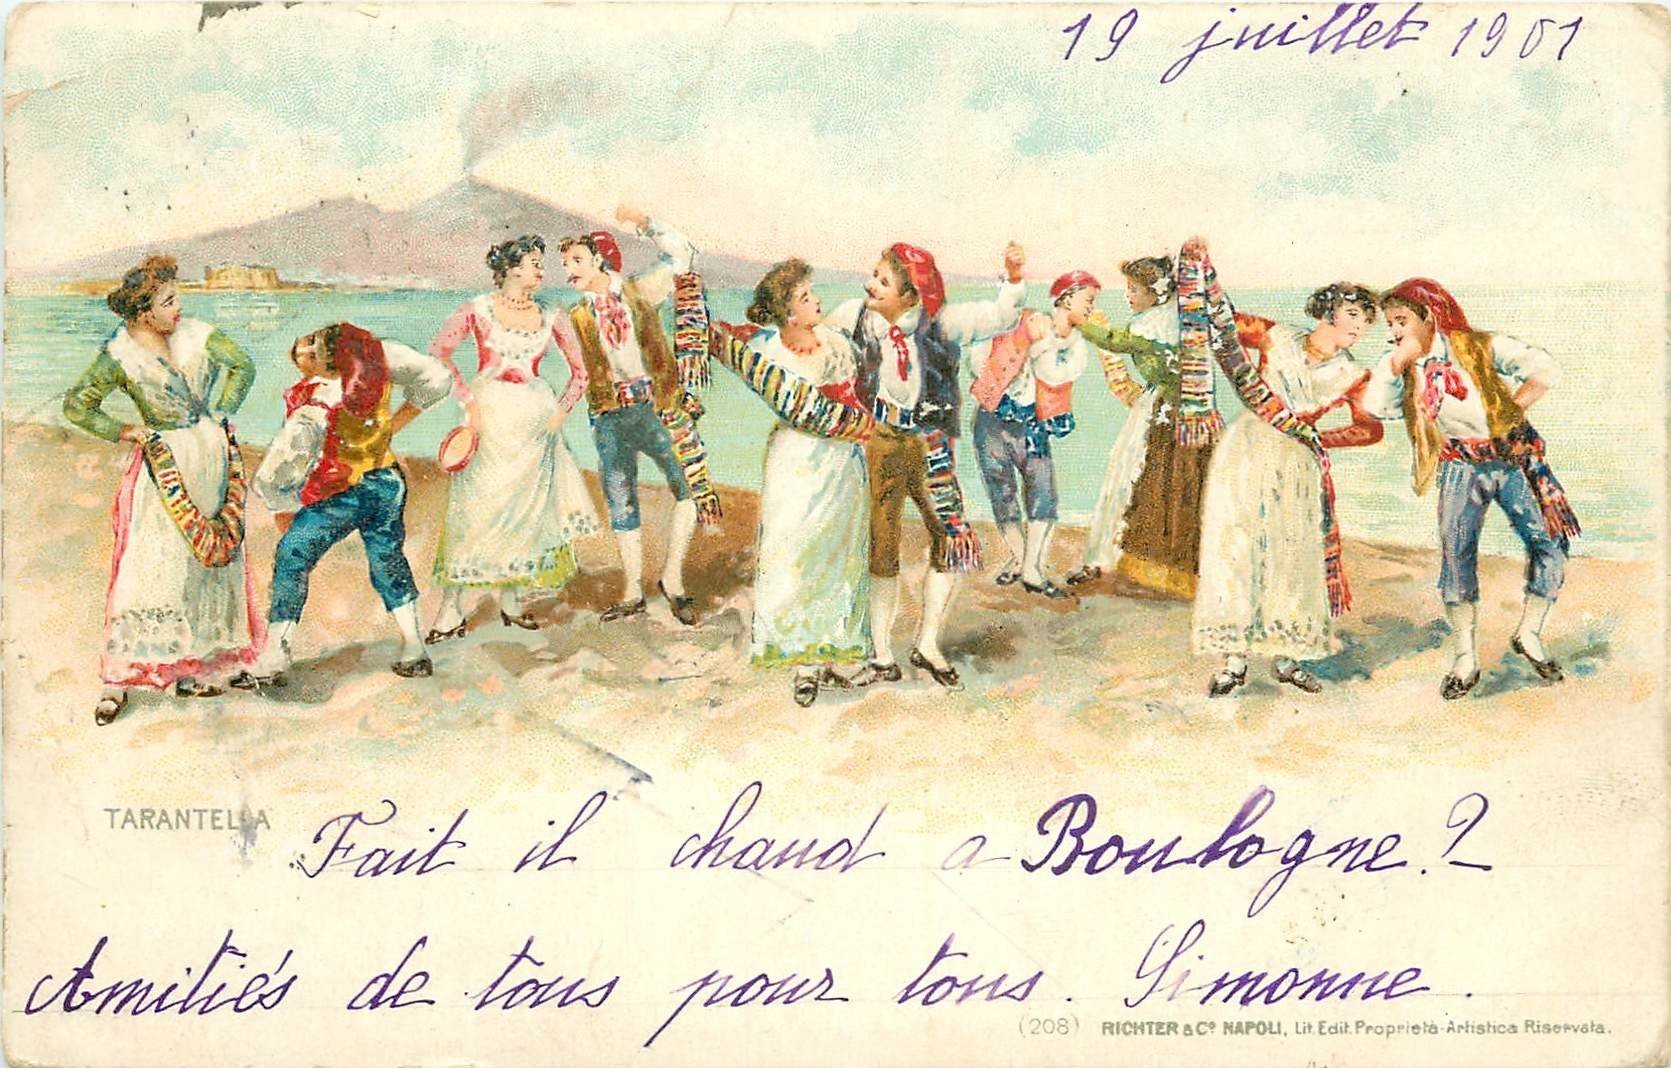 19 juillet 1901
TARANTELLA
Fait il chaud a Boulogne.?
Amitiés de tous pour tous. Simonne.
(208) RICHTER & Co NAPOLI, Lit. Edit. Proprietà-Artistica Riservata.